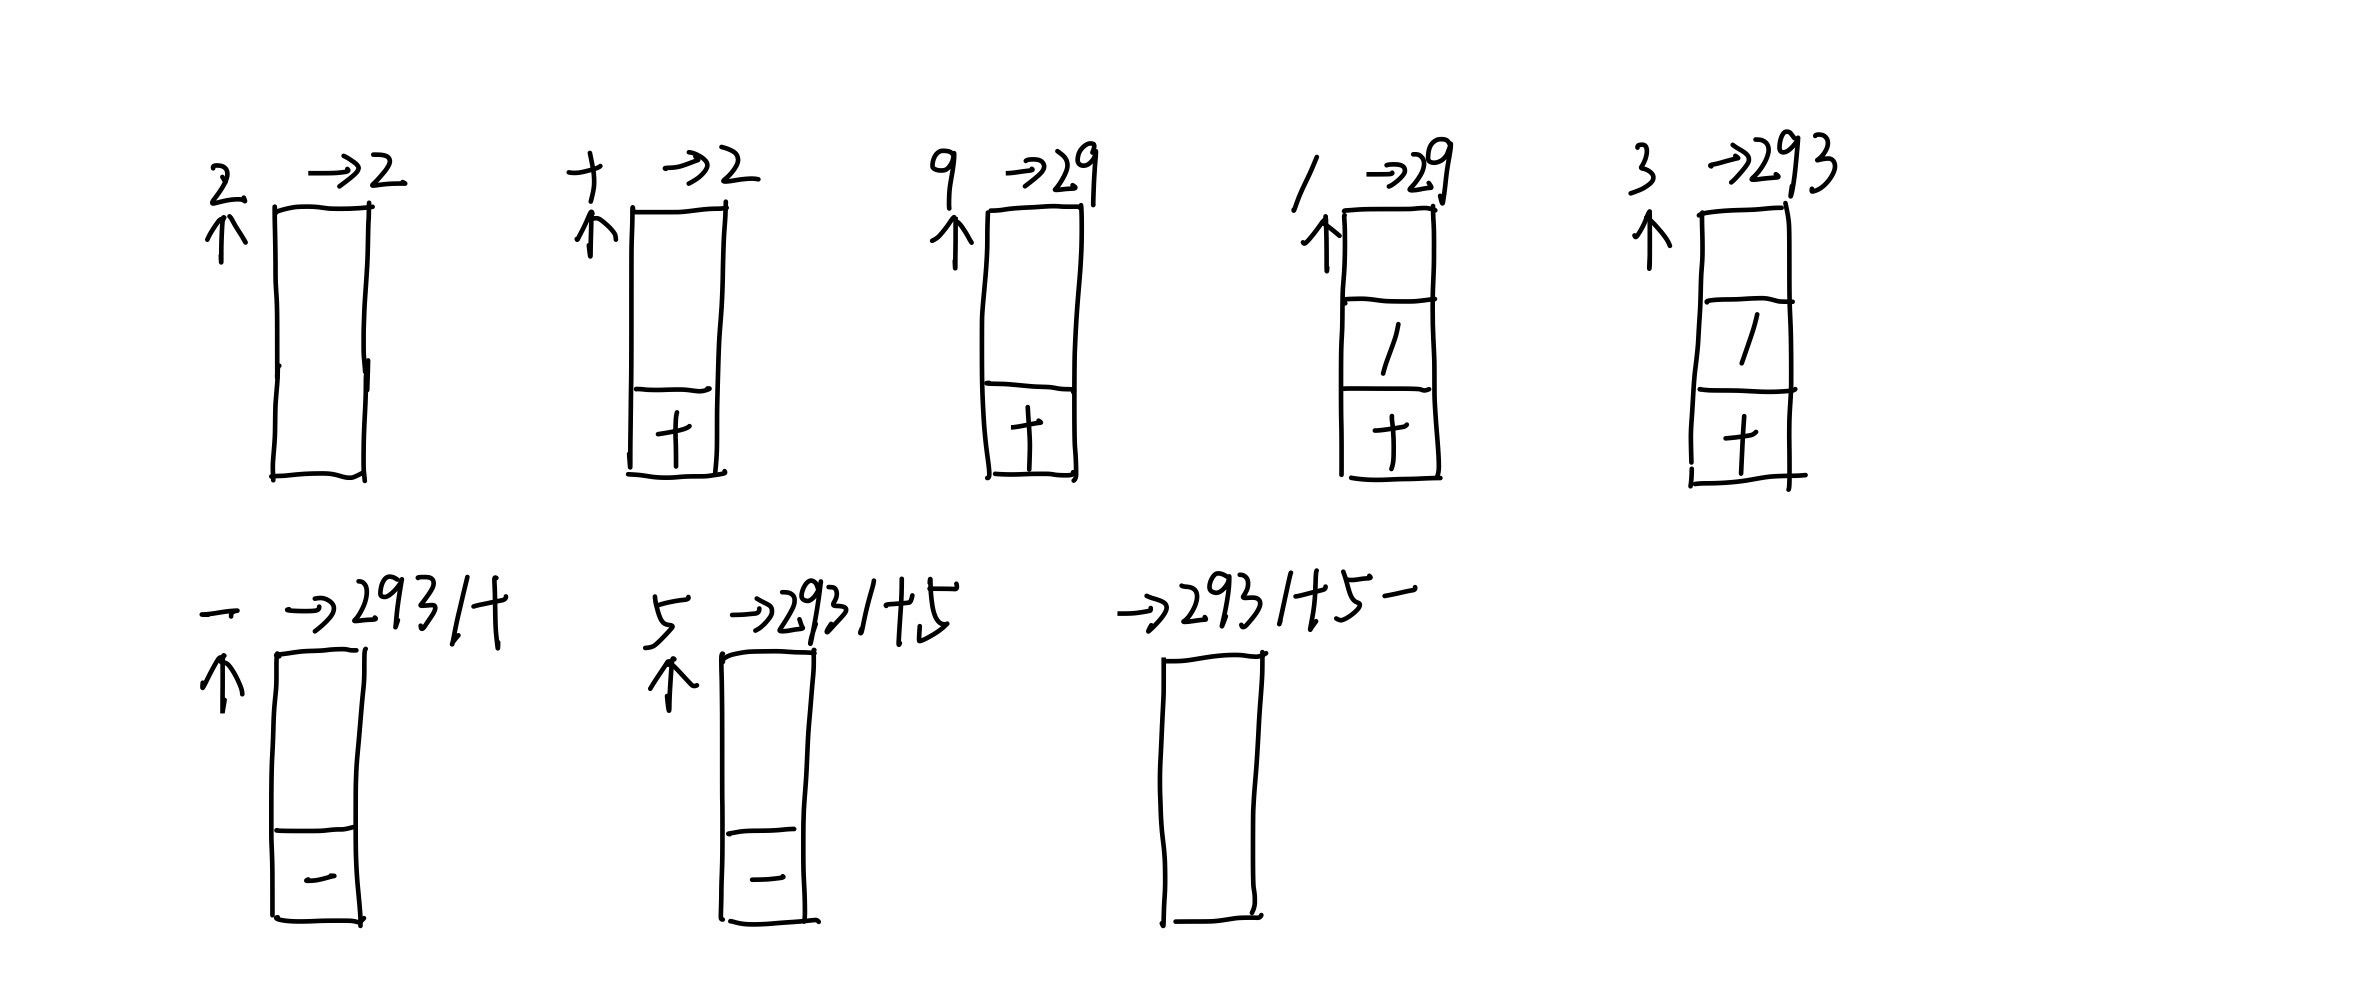 2 →2 + →2 9 →29 / →29 3 →293
↑ ↑ ↑ ↑ ↑
/ /
+ + + +
- →293/+ 5 →293/+5 →293/+5-
↑ ↑
- -